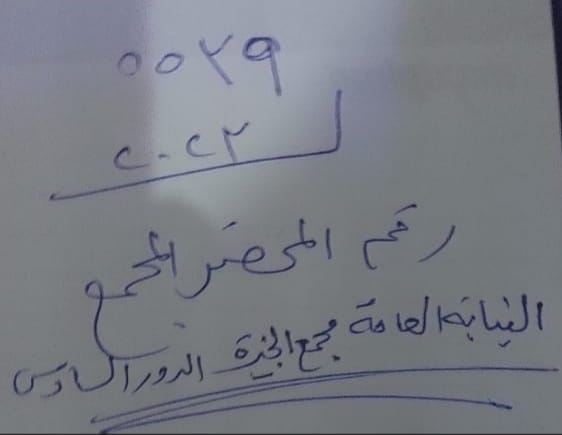 ٥٥٢٩
لـ ٢٠٢٣
رقم المحضر المجمع
النيابة العامة مجمع الجيزة الدور السادس